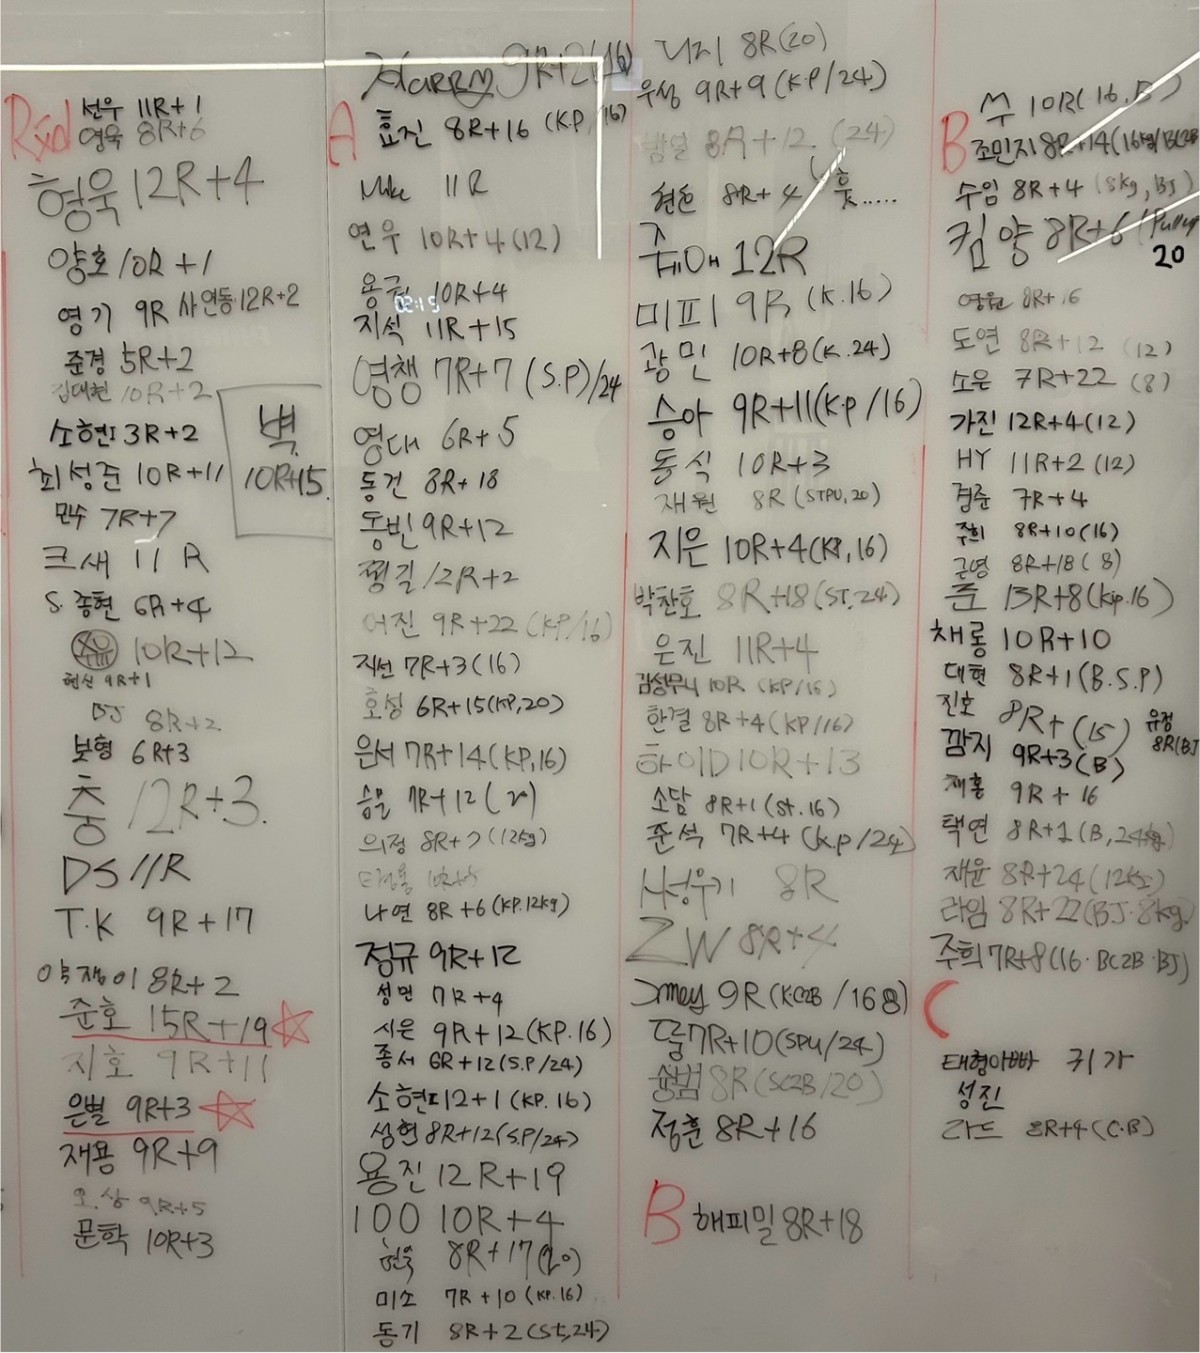 Rxd
선우 11R+1
영욱 8R+6
형욱 12R+4
양호 10R+1
영기 9R 사연동 12R+2
준경 5R+2
김대현 10R+2
벽 10R+15
소현I 3R+2
최성준 10R+11
민수 7R+7
크새 11R
S. 종현 6R+4
10R+12
현신 9R+1
BJ 8R+2
보형 6R+3
충 12R+3
DS 11R
T.K 9R+17
약쟁이 8R+2
준호 15R+19 ☆
지호 9R+11
은별 9R+3 ☆
재용 9R+9
오.상 9R+5
문학 10R+3
A
Harry 9R+2(16)
효진 8R+16 (K.P, 16)
Mike 11R
연우 10R+4(12)
용권 10R+4
지석 11R+15
영챙 7R+7 (S.P)/24
영대 6R+5
동건 8R+18
동빈 9R+12
찡길 12R+2
어진 9R+22 (KP/16)
지선 7R+3(16)
호성 6R+15(KP,20)
은서 7R+14(KP,16)
승문 7R+12(20)
의정 8R+2(12kg)
나연 8R+6(KP.12kg)
정규 9R+12
성민 7R+4
시은 9R+12(KP.16)
종서 6R+12(S.P/24)
소현II 12+1(KP.16)
성현 8R+12(S.P/24)
용진 12R+19
100 10R+4
현욱 8R+17(20)
미소 7R+10(KP.16)
동기 8R+2(St,24)
디지 8R(20)
우성 9R+9(K.P/24)
밤얼 8R+12 (24)
현은 8R+4 흣.....
쥬대 12R
미피 9R (K.16)
광민 10R+8(K.24)
승아 9R+11(K.P/16)
동식 10R+3
재원 8R(STPU,20)
지은 10R+4(KP,16)
박찬호 8R+18(ST.24)
은진 11R+4
김성무니 10R (KP/16)
한결 8R+4(KP/16)
하이D 10R+13
소담 8R+1(St.16)
준석 7R+4(K.P/24)
8R
ZW 8R+4
9R(KC2B/16 8)
뚭 7R+10(SPU/24)
윤범 8R(SC2B/20)
정훈 8R+16
B 해피밀 8R+18
B
M 10R(16,B)
조민지 8R+14(16kg/BC2B
수임 8R+4(8kg,BJ)
킴양 8R+6(Pullup 20
영원 8R+16
도연 8R+12 (12)
소은 7R+22 (8)
가진 12R+4(12)
HY 11R+2(12)
경준 7R+4
주희 8R+10(16)
근영 8R+18(8)
준 13R+8(Kip.16)
채롱 10R+10
대현 8R+1(B.S.P)
진호 8R+(15)
유정 8R(BJ
깜지 9R+3(B)
재홍 9R+16
택연 8R+1(B,24kg)
재윤 8R+24(12kg)
라임 8R+22(BJ.8kg)
주희 7R+8(16·BC2B·BJ)
C
태형아빠 귀가
성진
라드 8R+4(C.B)